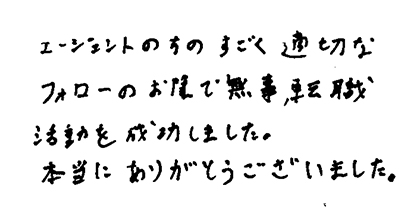 エージェントの方の すごく 適切な
フォローのお陰で無事、転職
活動を成功しました。
本当に ありがとうございました。